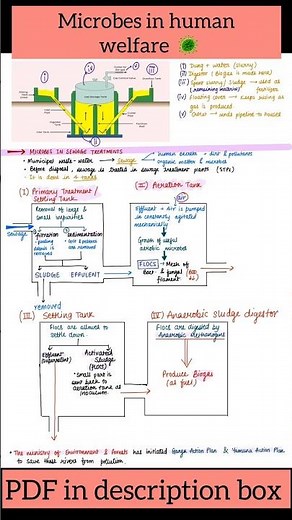 Microbes in human
welfare
(i) Dung + water (slurry)
(ii) Digestor (Biogas is made here)
(iii) Spent slurry / Sludge → used as
(remaining material) fertilizer
(iv) Floating cover → keeps rising as
gas is produced
(v) Outlet → sends pipeline to houses
MICROBES IN SEWAGE TREATMENTS
• Municipal waste-water → Sewage → Human excreta + dirt & pollutants
organic matter & microbes
• Before disposal, sewage is treated in sewage treatment plants (STPs)
• It is done in 4 tanks
(I) Primary Treatment /
Settling Tank
(II) Aeration Tank
air
Removal of large &
small impurities
Sewage
filtration
sedimentation
floating
debris is
removed
Grit & pebbles
are removed
SLUDGE
EFFLUENT
removed
Effluent + Air is pumped
in constantly agitated
mechanically
Growth of useful
aerobic microbes
FLOCS → Mesh of
Bact. & fungal
filament
(III) Settling Tank
(IV) Anaerobic Sludge digestor
Flocs are allowed to
settle down
Effluent
(Supernatant)
Activated
Sludge
(FLOCS)
• Small part is
sent back to
aeration tank as
inoculum
Flocs are digested by
Anaerobic methanogens
Produce Biogas
(as fuel)
• The ministry of Environment & Forests has initiated Ganga Action Plan & Yamuna Action Plan
to save these rivers from pollution
PDF in description box